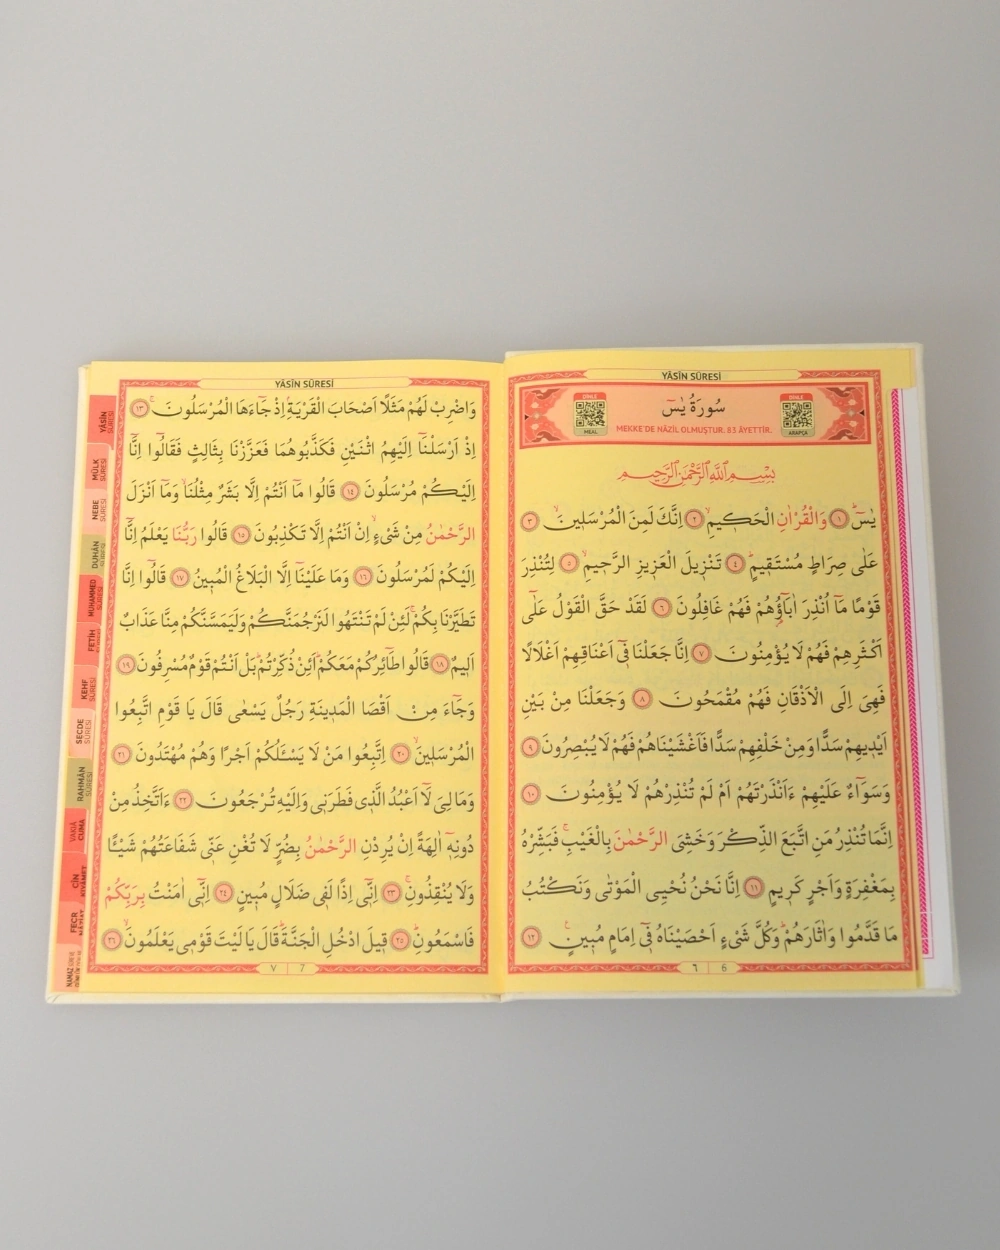 YÂSÎN SÛRESİ
DİNLE
MEAL
سُورَةُ يٰسٓ
MEKKE'DE NÂZİL OLMUŞTUR. 83 ÂYETTİR.
DİNLE
ARAPÇA
بِسْمِ اللّٰهِ الرَّحْمٰنِ الرَّحِيمِ
يٰسٓۚ ﴿١﴾ وَالْقُرْاٰنِ الْحَكِيمِۙ ﴿٢﴾ اِنَّكَ لَمِنَ الْمُرْسَلِينَۙ ﴿٣﴾
عَلٰى صِرَاطٍ مُسْتَقِيمٍۜ ﴿٤﴾ تَنْزِيلَ الْعَزِيزِ الرَّحِيمِۙ ﴿٥﴾ لِتُنْذِرَ
قَوْمًا مَٓا اُنْذِرَ اٰبَٓاؤُ۬هُمْ فَهُمْ غَافِلُونَ ﴿٦﴾ لَقَدْ حَقَّ الْقَوْلُ عَلٰٓى
اَكْثَرِهِمْ فَهُمْ لَا يُؤْمِنُونَ ﴿٧﴾ اِنَّا جَعَلْنَا فٓى اَعْنَاقِهِمْ اَغْلَالًا
فَهِىَ اِلَى الْاَذْقَانِ فَهُمْ مُقْمَحُونَ ﴿٨﴾ وَجَعَلْنَا مِنْ بَيْنِ
اَيْدِيهِمْ سَدًّا وَمِنْ خَلْفِهِمْ سَدًّا فَاَغْشَيْنَاهُمْ فَهُمْ لَا يُبْصِرُونَ ﴿٩﴾
وَسَوَٓاءٌ عَلَيْهِمْ ءَاَنْذَرْتَهُمْ اَمْ لَمْ تُنْذِرْهُمْ لَا يُؤْمِنُونَ ﴿١٠﴾
اِنَّمَا تُنْذِرُ مَنِ اتَّبَعَ الذِّكْرَ وَخَشِىَ الرَّحْمٰنَ بِالْغَيْبِۚ فَبَشِّرْهُ
بِمَغْفِرَةٍ وَاَجْرٍ كَرِيمٍ ﴿١١﴾ اِنَّا نَحْنُ نُحْيِى الْمَوْتٰى وَنَكْتُبُ
مَا قَدَّمُوا وَاٰثَارَهُمْۜ وَكُلَّ شَىْءٍ اَحْصَيْنَاهُ فٓى اِمَامٍ مُبِينٍۚ ﴿١٢﴾
٦ 6
YÂSÎN SÛRESİ
وَاضْرِبْ لَهُمْ مَثَلًا اَصْحَابَ الْقَرْيَةِۢ اِذْ جَٓاءَهَا الْمُرْسَلُونَۚ ﴿١٣﴾
اِذْ اَرْسَلْنَٓا اِلَيْهِمُ اثْنَيْنِ فَكَذَّبُوهُمَا فَعَزَّزْنَا بِثَالِثٍ فَقَالُٓوا اِنَّٓا
اِلَيْكُمْ مُرْسَلُونَ ﴿١٤﴾ قَالُوا مَٓا اَنْتُمْ اِلَّا بَشَرٌ مِثْلُنَاۙ وَمَٓا اَنْزَلَ
الرَّحْمٰنُ مِنْ شَىْءٍۙ اِنْ اَنْتُمْ اِلَّا تَكْذِبُونَ ﴿١٥﴾ قَالُوا رَبُّنَا يَعْلَمُ اِنَّٓا
اِلَيْكُمْ لَمُرْسَلُونَ ﴿١٦﴾ وَمَا عَلَيْنَٓا اِلَّا الْبَلَاغُ الْمُبِينُ ﴿١٧﴾ قَالُٓوا اِنَّا
تَطَيَّرْنَا بِكُمْۚ لَئِنْ لَمْ تَنْتَهُوا لَنَرْجُمَنَّكُمْ وَلَيَمَسَّنَّكُمْ مِنَّا عَذَابٌ
اَلِيمٌ ﴿١٨﴾ قَالُوا طَٓائِرُكُمْ مَعَكُمْۜ اَئِنْ ذُكِّرْتُمْۜ بَلْ اَنْتُمْ قَوْمٌ مُسْرِفُونَ ﴿١٩﴾
وَجَٓاءَ مِنْ اَقْصَا الْمَدِينَةِ رَجُلٌ يَسْعٰى قَالَ يَا قَوْمِ اتَّبِعُوا
الْمُرْسَلِينَۙ ﴿٢٠﴾ اِتَّبِعُوا مَنْ لَا يَسْـَٔلُكُمْ اَجْرًا وَهُمْ مُهْتَدُونَ ﴿٢١﴾
وَمَا لِىَ لَٓا اَعْبُدُ الَّذِى فَطَرَنِى وَاِلَيْهِ تُرْجَعُونَ ﴿٢٢﴾ ءَاَتَّخِذُ مِنْ
دُونِهٓ اٰلِهَةً اِنْ يُرِدْنِ الرَّحْمٰنُ بِضُرٍّ لَا تُغْنِ عَنِّى شَفَاعَتُهُمْ شَيْـًٔا
وَلَا يُنْقِذُونِۚ ﴿٢٣﴾ اِنِّٓى اِذًا لَفِى ضَلَالٍ مُبِينٍ ﴿٢٤﴾ اِنِّٓى اٰمَنْتُ بِرَبِّكُمْ
فَاسْمَعُونِۜ ﴿٢٥﴾ قِيلَ ادْخُلِ الْجَنَّةَۜ قَالَ يَا لَيْتَ قَوْمِى يَعْلَمُونَۙ ﴿٢٦﴾
٧ 7
YÂSÎN
SÛRESİ
MÜLK
SÛRESİ
NEBE
SÛRESİ
DUHÂN
SÛRESİ
MUHAMMED
FETİH
KEHF
SÛRESİ
SECDE
SÛRESİ
RAHMÂN
SÛRESİ
VAKIÂ
CUMA
CİN
KIYÂMET
FECR
NAMAZ